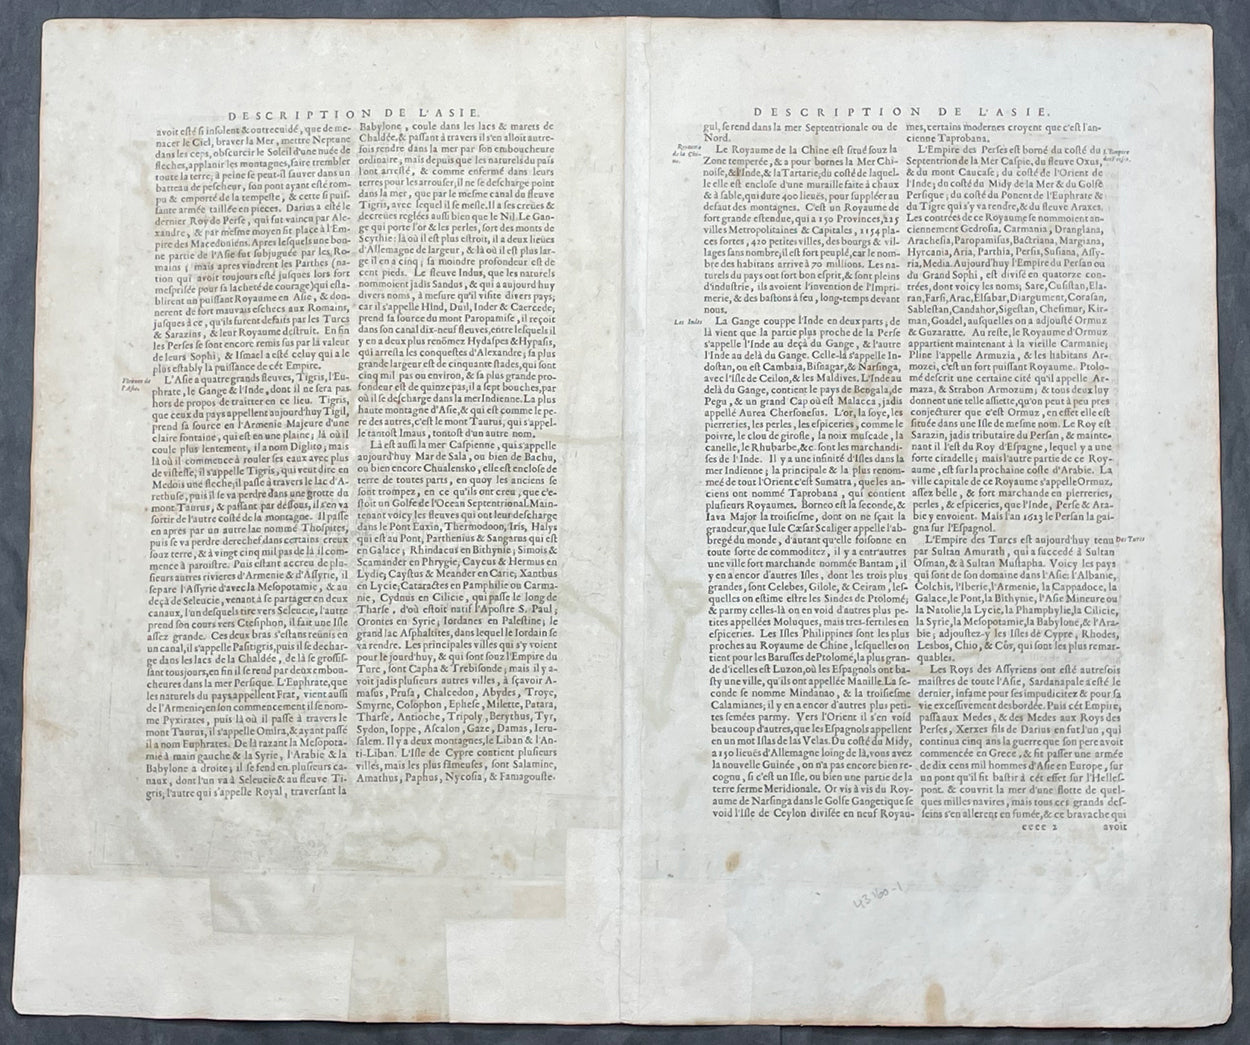 DESCRIPTION DE L'ASIE.
avoit esté si insolent & outrecuidé, que de me-
nacer le Ciel, braver la Mer, mettre Neptune
dans les ceps, obscurcir le Soleil d'une nuée de
fleches, applanir les montagnes, faire trembler
toute la terre, à peine se peut-il sauver dans un
batteau de pescheur, son pont ayant esté rom-
pu & emporté de la tempeste, & cette si puis-
sante armée taillée en pieces. Darius a esté le
dernier Roy de Perse, qui fut vaincu par Ale-
xandre, & par mesme moyen fit place à l'Em-
pire des Macedoniens. Apres lesquels une bon-
ne partie de l'Asie fut subjuguée par les Ro-
mains; mais apres vindrent les Parthes (na-
tion qui avoit toujours esté jusques lors fort
mesprisée pour sa lacheté de courage) qui esta-
blirent un puissant Royaume en Asie, & don-
nerent de fort mauvais eschecs aux Romains,
jusques à ce, qu'ils furent defaits par les Turcs
& Sarazins, & leur Royaume destruit. En fin
les Perses se sont encore remis sus par la valeur
de leurs Sophi, & Ismael a esté celuy qui a le
plus estably la puissance de cét Empire.
Fleuves de
l'Asie.
L'Asie a quatre grands fleuves, Tigris, l'Eu-
phrate, le Gange & l'Inde, dont il ne sera pas
hors de propos de traitter en ce lieu. Tigris,
que ceux du pays appellent aujourd'huy Tigil,
prend sa source en l'Armenie Majeure d'une
claire fontaine, qui est en une plaine; là où il
coule plus lentement, il a nom Diglito; mais
là où il commence à rouler ses eaux avec plus
de vistesse, il s'appelle Tigris, qui veut dire en
Medois une fleche; il passe à travers le lac d'A-
rethuse, puis il se va perdre dans une grotte du
mont Taurus, & passant par dessous, il s'en va
sortir de l'autre costé de la montagne. Il passe
en apres par un autre lac nommé Thospites,
puis se va perdre derechef dans certains creux
souz terre, & à vingt cinq mil pas de là il com-
mence à paroistre. Puis estant accreu de plu-
sieurs autres rivieres d'Armenie & d'Assyrie, il
separe l'Assyrie d'avec la Mesopotamie, & au
deçà de Seleucie, venant à se partager en deux
canaux, l'un desquels tire vers Seleucie, l'autre
prend son cours vers Ctesiphon, il fait une Isle
assez grande. Ces deux bras s'estans reünis en
un canal, il s'appelle Pasitigris, puis il se dechar-
ge dans les lacs de la Chaldée, de là se grossis-
sant tousjours, en fin il se rend par deux embou-
cheures dans la mer Persique. L'Euphrate, que
les naturels du pays appellent Frat, vient aussi
de l'Armenie; en son commencement il se nom-
me Pyxirates, puis là où il passe à travers le
mont Taurus, il s'appelle Omira, & ayant passé
il a nom Euphrates. De là razant la Mesopota-
mie à main gauche & la Syrie, l'Arabie & la
Babylone a droite; il se fend en plusieurs ca-
naux, dont l'un va à Seleucie & au fleuve Ti-
gris; l'autre qui s'appelle Royal, traversant la
Babylone, coule dans les lacs & marets de
Chaldée, & passant à travers il s'en alloit autre-
fois rendre dans la mer par son emboucheure
ordinaire; mais depuis que les naturels du pais
l'ont arresté, & comme enfermé dans leurs
terres pour les arrouser, il ne se descharge point
dans la mer, que par le mesme canal du fleuve
Tigris, avec lequel il se mesle. Il a ses creües &
decreües reglées aussi bien que le Nil. Le Gan-
ge qui porte l'or & les perles, sort des monts de
Scythie: là où il est plus estroit, il a deux lieuës
d'Allemagne de largeur, & là où il est plus lar-
ge il en a cinq; sa moindre profondeur est de
cent pieds. Le fleuve Indus, que les naturels
nommoient jadis Sandus, & qui a aujourd'huy
divers noms, à mesure qu'il visite divers pays;
car il s'appelle Hind, Duil, Inder & Caercede,
prend sa source du mont Paropamise, il reçoit
dans son canal dix-neuf fleuves, entre lesquels il
y en a deux plus renõmez Hydaspes & Hypasis,
qui arresta les conquestes d'Alexandre; sa plus
grande largeur est de cinquante stades, qui sont
cinq mil pas ou environ, & sa plus grande pro-
fondeur est de quinze pas, il a sept bouches, par
où il se descharge dans la mer Indienne. La plus
haute montagne d'Asie, & qui est comme le pe-
re des autres, c'est le mont Taurus, qui s'appel-
le tantost Imaus, tantost d'un autre nom.
Là est aussi la mer Caspienne, qui s'appelle
aujourd'huy Mar de Sala, ou bien de Bachu,
ou bien encore Chualensko, elle est enclose de
terre de toutes parts, en quoy les anciens se
sont trompez, en ce qu'ils ont creu, que c'e-
stoit un Golfe de l'Ocean Septentrional. Main-
tenant voicy les fleuves qui ont leur descharge
dans le Pont Euxin, Thermodoon, Iris, Halys
qui est au Pont, Parthenius & Sangarus qui est
en Galace; Rhindacus en Bithynie; Simois &
Scamander en Phrygie, Cayeus & Hermus en
Lydie; Caystus & Meander en Carie, Xanthus
en Lycie; Cataractes en Pamphilie ou Carma-
nie, Cydnus en Cilicie, qui passe le long de
Tharse, d'où estoit natif l'Apostre S. Paul;
Orontes en Syrie; Iordanes en Palestine; le
grand lac Asphaltites, dans lequel le Iordain se
va rendre. Les principales villes qui s'y voient
pour le jourd'huy, & qui sont souz l'Empire du
Turc, sont Capha & Trebisonde; mais il y a-
voit jadis plusieurs autres villes, à sçavoir A-
masus, Prusa, Chalcedon, Abydes, Troye,
Smyrne, Colophon, Ephese, Milette, Patara,
Tharse, Antioche, Tripoly, Berythus, Tyr,
Sydon, Ioppe, Ascalon, Gaze, Damas, Ieru-
salem. Il y a deux montagnes, le Liban & l'An-
ti-Liban. L'Isle de Cypre contient plusieurs
villes, mais les plus fameuses, sont Salamine,
Amathus, Paphus, Nycosia, & Famagouste.
DESCRIPTION DE L'ASIE.
gul, se rend dans la mer Septentrionale ou de
Nord.
Royaume
de la Chi-
ne.
Le Royaume de la Chine est situé souz la
Zone temperée, & a pour bornes la Mer Chi-
noise, & l'Inde, & la Tartarie; du costé de laquel-
le elle est enclose d'une muraille faite à chaux
& à sable, qui dure 400 lieuës, pour suppléer au
defaut des montagnes. C'est un Royaume de
fort grande estendue, qui a 150 Provinces, 215
villes Metropolitaines & Capitales, 2154 pla-
ces fortes, 420 petites villes, des bourgs & vil-
lages sans nombre; il est fort peuplé, car le nom-
bre des habitans arrive à 70 millions. Les na-
turels du pays ont fort bon esprit, & sont pleins
d'industrie, ils avoient l'invention de l'Impri-
merie, & des bastons à feu, long-temps devant
nous.
Les Indes
La Gange couppe l'Inde en deux parts; de
là vient que la partie plus proche de la Perse
s'appelle l'Inde au deçà du Gange, & l'autre
l'Inde au delà du Gange. Celle-là s'appelle In-
dostan, ou est Cambaia, Bisnagar, & Narsinga,
avec l'Isle de Ceilon, & les Maldives. L'Inde au
delà du Gange, contient le pays de Bengala, de
Pegu, & un grand Cap où est Malacca, jadis
appellé Aurea Chersonesus. L'or, la soye, les
pierreries, les perles, les espiceries, comme le
poivre, le clou de girofle, la noix muscade, la
canelle, le Rhubarbe, &c. sont les marchandi-
ses de l'Inde. Il y a une infinité d'Isles dans la
mer Indienne; la principale & la plus renom-
meé de tout l'Orient c'est Sumatra, que les an-
ciens ont nommé Taprobana, qui contient
plusieurs Royaumes. Borneo est la seconde, &
Iava Major la troisiesme, dont on ne sçait la
grandeur, que Iule Cæsar Scaliger appelle l'ab-
bregé du monde, d'autant qu'elle foisonne en
toute sorte de commoditez, il y a entr'autres
une ville fort marchande nommée Bantam, il
y en a encor d'autres Isles, dont les trois plus
grandes, sont Celebes, Gilole, & Ceiram, les-
quelles on estime estre les Sindes de Ptolomé;
& parmy celles-là on en void d'autres plus pe-
tites appellées Moluques, mais tres-fertiles en
espiceries. Les Isles Philippines sont les plus
proches au Royaume de Chine, lesquelles on
tient pour les Barusses de Ptolomé, la plus gran-
de d'icelles est Luzon, où les Espagnols ont ba-
sty une ville, qu'ils ont appellée Manille. La se-
conde se nomme Mindanao, & la troisiesme
Calamianes; il y en a encor d'autres plus peti-
tes semées parmy. Vers l'Orient il s'en void
beaucoup d'autres, que les Espagnols appellent
en un mot Islas de las Velas. Du costé du Midy,
a 150 lieuës d'Allemagne loing de là, vous avez
la nouvelle Guinée, on n'a pas encore bien re-
cognu, si c'est un Isle, ou bien une partie de la
terre ferme Meridionale. Or vis à vis du Roy-
aume de Narsinga dans le Golfe Gangetique se
void l'Isle de Ceylon divisée en neuf Royau-
mes, certains modernes croyent que c'est l'an-
cienne Taprobana.
L'Empire
des Perses.
L'Empire des Perses est borné du costé du
Septentrion de la Mer Caspie, du fleuve Oxus,
& du mont Caucase, du costé de l'Orient de
l'Inde; du costé du Midy de la Mer & du Golfe
Persique; du costé du Ponent de l'Euphrate &
du Tigre qui s'y va rendre, & du fleuve Araxes.
Les contrées de ce Royaume se nommoient an-
ciennement Gedrosia, Carmania, Drangiana,
Arachesia, Paropamisus, Bactriana, Margiana,
Hyrcania, Aria, Parthia, Persis, Susiana, Assy-
ria, Media. Aujourd'huy l'Empire du Persan ou
du Grand Sophi, est divisé en quatorze con-
trées, dont voicy les noms; Sare, Cusistan, Ela-
ran, Farsi, Arac, Elsabar, Diargument, Corasan,
Sablestan, Candahor, Sigestan, Chesimur, Kir-
man, Goadel, ausquelles on a adjousté Ormuz
& Guzaratte. Au reste, le Royaume d'Ormuz
appartient maintenant à la vieille Carmanie;
Pline l'appelle Armuzia, & les habitans Ar-
mozei, c'est un fort puissant Royaume. Ptolo-
mé descrit une certaine cité qu'il appelle Ar-
maza, & Strabon Armozum; & tous deux luy
donnent une telle assette, qu'on peut à peu pres
conjecturer que c'est Ormuz, en effet elle est
située dans une Isle de mesme nom. Le Roy est
Sarazin, jadis tributaire du Persan, & mainte-
nant il l'est du Roy d'Espagne, lequel y a une
forte citadelle; mais l'autre partie de ce Roy-
aume, est sur la prochaine coste d'Arabie. La
ville capitale de ce Royaume s'appelle Ormuz,
assez belle, & fort marchande en pierreries,
perles, & espiceries, que l'Inde, Perse & Ara-
bie y envoient. Mais l'an 1623 le Persan la gai-
gna sur l'Espagnol.
Des Turcs
L'Empire des Turcs est aujourd'huy tenu
par Sultan Amurath, qui a succedé à Sultan
Osman, & à Sultan Mustapha. Voicy les pays
qui sont de son domaine dans l'Asie; l'Albanie,
Colchis, l'Iberie, l'Armenie, la Cappadoce, la
Galace, le Pont, la Bithynie, l'Asie Mineure ou
la Natolie, la Lycie, la Phamphylie, la Cilicie,
la Syrie, la Mesopotamie, la Babylone, & l'Ara-
bie; adjoustez-y les Isles de Cypre, Rhodes,
Lesbos, Chio, & Côs, qui sont les plus remar-
quables.
Les Roys des Assyriens ont esté autrefois
maistres de toute l'Asie, Sardanapale a esté le
dernier, infame pour ses impudicitez & pour sa
vie excessivement desbordée. Puis cét Empire,
passa aux Medes, & des Medes aux Roys des
Perses, Xerxes fils de Darius en fut l'un, qui
continua cinq ans la guerre que son pere avoit
commencée en Grece, & fit passer une armée
de dix cens mil hommes d'Asie en Europe, sur
un pont qu'il fit bastir à cét effet sur l'Helles-
pont, & couvrit la mer d'une flotte de quel-
ques milles navires, mais tous ces grands des-
seins s'en allerent en fumée, & ce bravache qui
cccc 2 avoit
43160-1